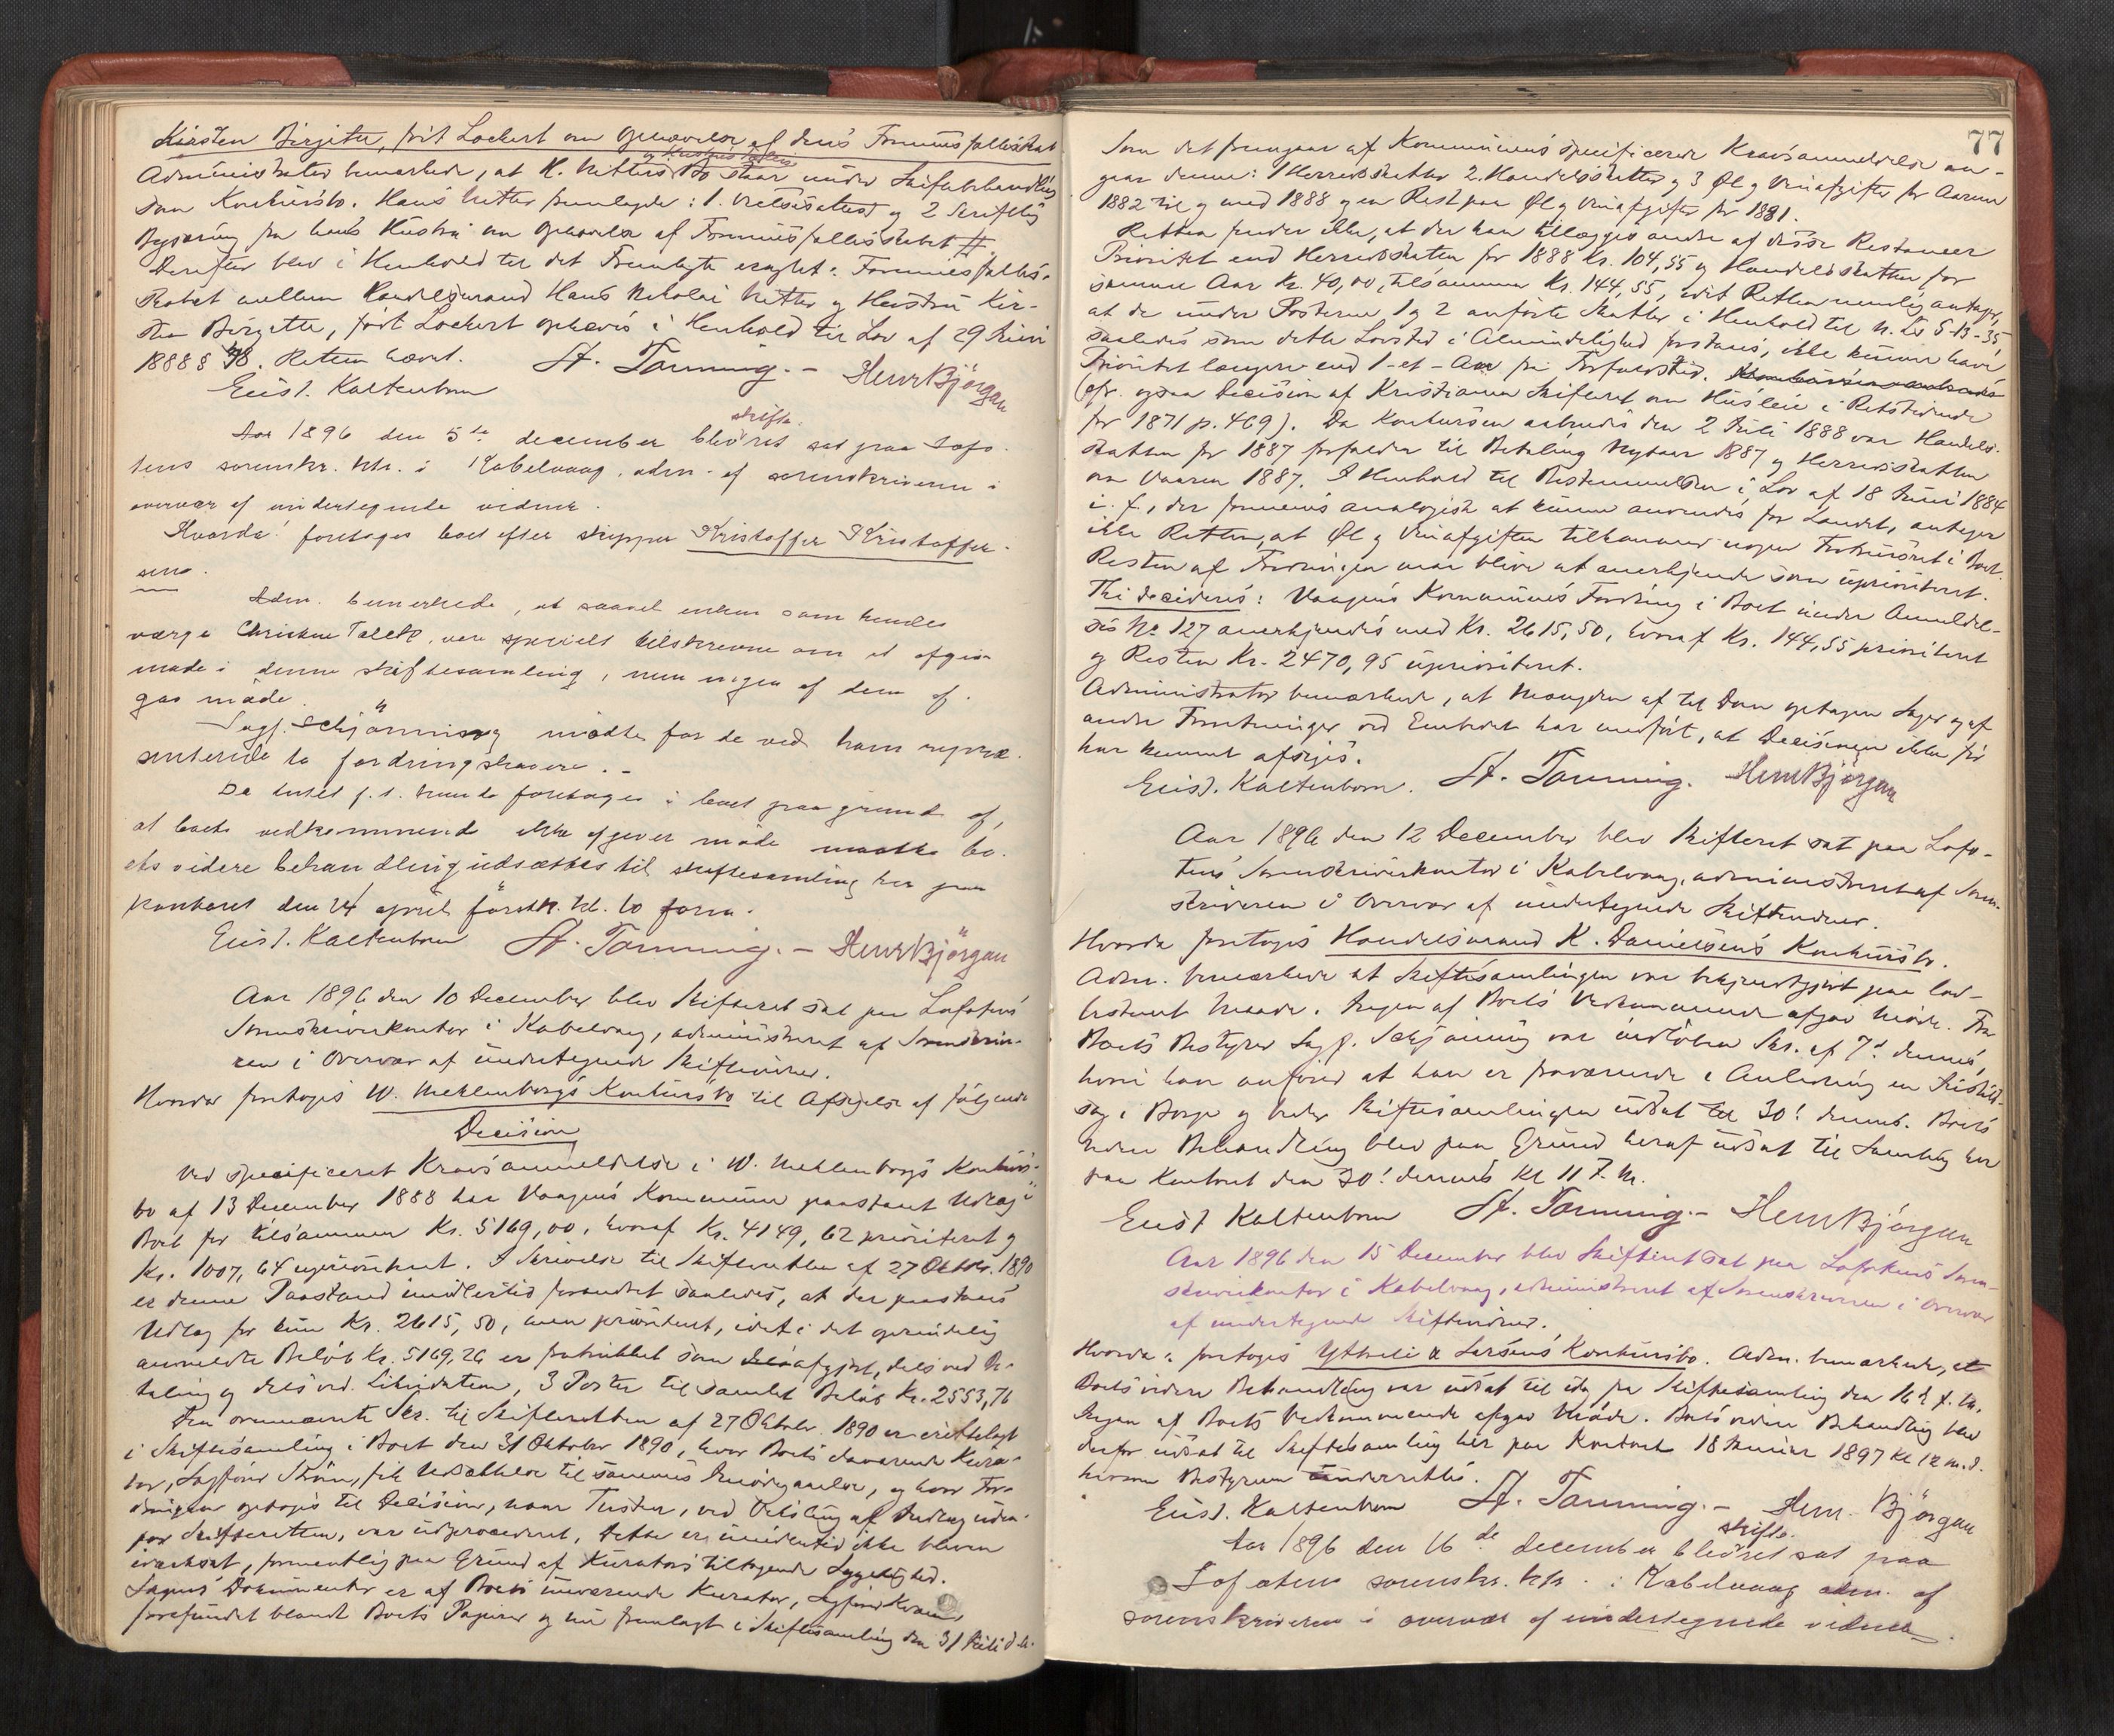 Kirsten Birgitte, født Lockert om Ophævelse af deres Formuesfællesskab
Administrator bemærkede, at H. Netters Bo staar under Skiftebehandling
som Konkursbo. Hans Netter fremlagde: 1. Vielsesattest og 2 Skriftlig
Begjæring fra hans Hustru om Ophævelse af Formuesfællesskabet #.
Derefter blev i Henhold til det Fremlagte eragtet: Formuesfælles-
skabet mellem Handelsmand Hans Nikolai Netter og Hustru Kir-
sten Birgitte, født Lockert ophæves i Henhold til Lov af 29 Juni
1888 § 48. Retten hævet.
Eilst. Kaltenborn St. Tønning. - HenrBjörgan
Aar 1896 den 5te december blev skifteret sat paa Lofo-
tens sorenskr. ktr. i Kabelvaag, adm. af sorenskriveren i
overvær af undertegnede vidner.
Hvorda: foretages boet efter skipper Kristoffer Kristoffer-
sen.
Adm. bemerkede, at saavel enken som hendes
værge Christen Toleth, var specielt tilskrevne om at afgive
møde i denne skiftesamling, men ingen af dem af-
gav møde.
Sagf. Schjönning mødte for de ved ham repræ-
senterede to fordringshavere. -
Da intet p. t. kunde foretages i boet paa grund af,
at boets vedkommende ikke afgiver møde maatte bo-
ets videre behandling udsættes til skiftesamling her paa
kontoret den 24 april förstk. kl. 10 form.
Eilst. Kaltenborn St. Tønning. - HenrBjörgan
Aar 1896 den 10 December blev Skifteret sat paa Lofotens
Sorenskriverkontor i Kabelvaag, administreret af Sorenskrive-
ren i Overvær af undertegnede Skiftevidner.
Hvorda foretoges W. Mehlenborgs Konkursbo til Afsigelse af følgende
Decision
Ved specificeret Kravsanmeldelse i W. Mehlenborgs Konkurs-
bo af 13 December 1888 har Vaagens Kommune paastaaet Udlæg i
Boet for tilsammen Kr. 5169,00, hvoraf Kr. 4149,62 prioriteret og
Kr. 1007,64 uprioriteret. I Skrivelse til Skifteretten af 27 Oktbr. 1890
er denne Paastand imidlertid forandret saaledes, at der paastaaes
Udlæg for kun Kr. 2615,50, men prioriteret, idet i det oprindelig
anmeldte Beløb Kr. 5169,26 er fratrukket som afgjort, dels ved Be-
taling og dels ved Likvidation, 3 Poster til samlet Beløb Kr. 2553,76
Den ovennævnte Skr. til Skifteretten af 27 Oktober 1890 er irettelagt
i Skiftesamling i Boet den 31 Oktober 1890, hvor Boets daværende Kura-
tor, Sagfører Strøm, fik Udsættelse til sammes Imødegaaelse, og hvor For-
dringen optoges til Decision, naar Tvisten, ved Veksling af Indlæg uden-
for Skifteretten, var udprocederet. Dette er imidlertid ikke bleven
iværksat, formentlig paa Grund af Kurators tiltagende Sygelighed.
Sagens Dokumenter er af Boets nuværende Kurator, Sagfører Kvam
forefundet blandt Boets Papirer og nu fremlagt i Skiftesamling den 31 Juli d. A.
77
Som det fremgaar af Kommunens specificerede Kravsanmeldelse an-
gaar denne: 1 Herredsskatter 2. Handelsskatter og 3 Øl og Vinafgifter for Aarene
1882 til og med 1888 og en Rest paa Øl og Vinafgifter for 1881.
Retten finder ikke, at der kan tillægges andre af disse Restancer
Prioritet end Herredsskatten for 1888 Kr. 104,55 og Handelsskatten for
samme Aar Kr. 40,00, tilsammen Kr. 144,55, idet Retten nemlig antager,
at de under Posterne 1 og 2 anførte Skatter i Henhold til N. L. 5-13-35
saaledes som dette Lovsted i Almindelighed forstaaes, ikke kunne have
Prioritet længere end 1-et-Aar fra Forfaldstid.
(cfr. ogsaa Decision af Kristiania Skifteret om Husleie i Retstidende
for 1871 p. 469). Da Konkursen aabnedes den 2 Juli 1888 var Handels-
skatten for 1887 forfalden til Betaling Nytaar 1887 og Herredsskatten
om Vaaren 1887. I Henhold til Bestemmelsen i Lov af 18 Juni 1884
i. f., der formenes analogisk at kunne anvendes for Landet, antager
ikke Retten, at Øl og Vinafgiften tilkommer nogen Fortrinsret i Boet.
Resten af Fordringen maa blive at anerkjende som uprioriteret.
Thi decideres: Vaagens Kommunes Fordring i Boet under Anmeldel-
ses No 127 anerkjendes med Kr. 2615,50, hvoraf Kr. 144,55 prioriteret
og Resten Kr. 2470,95 uprioriteret.
Administrator bemærkede, at Mængden af til Dom optagne Sager og af
andre Forretninger ved Embedet har medført, at Decisionen ikke før
har kunnet afsiges.
Eilst. Kaltenborn. St. Tønning. HenrBjörgan
Aar 1896 den 12 December blev Skifteret sat paa Lofo-
tens Sorenskriverkontor i Kabelvaag, administreret af Soren-
skriveren i Overvær af undertegnede Skiftevidner.
Hvorda foretoges Handelsmand K. Danielsens Konkursbo.
Adm. bemærkede at Skiftesamlingen var bekjendtgjort paa lov-
bestemt Maade. Ingen af Boets Vedkommende afgav Møde. Fra
Boets Bestyrer Sagf. Schjønning var indløben Skr. af 7d dennes,
hvori han anfører at han er fraværende i Anledning en Åstæds-
sag i Borge og beder Skiftesamlingen udsat til 30! dennes. Boets
videre Behandling blev paa Grund heraf udsat til Samling her
paa Kontoret den 30! dennes Kl 11 F. M.
Eilst Kaltenborn St. Tønning. - HenrBjörgan
Aar 1896 den 15 December blev Skifteret sat paa Lofotens Soren-
skriverkontor i Kabelvaag, administreret af Sorenskriveren i Overvær
af undertegnede Skiftevidner.
Hvorda: foretoges Ytreli & Larsens Konkursbo. Adm. bemærkede, at
Boets videre Behandling var udsat til idag fra Skiftesamling den 16d f. M.
Ingen af Boets Vedkommende afgav Møde. Boets videre Behandling blev
derfor udsat til Skiftesamling her paa Kontoret 18 Januar 1897 Kl 12 m. d.
hvorom Bestyreren underrettes.
Eilst. Kaltenborn St. Tønning. - Henr. Björgan
Aar 1896 den 16de december blev skifteret sat paa
Lofotens sorenskr. ktr. i Kabelvaag adm. af
sorenskriveren i overvær af undertegnede vidner.